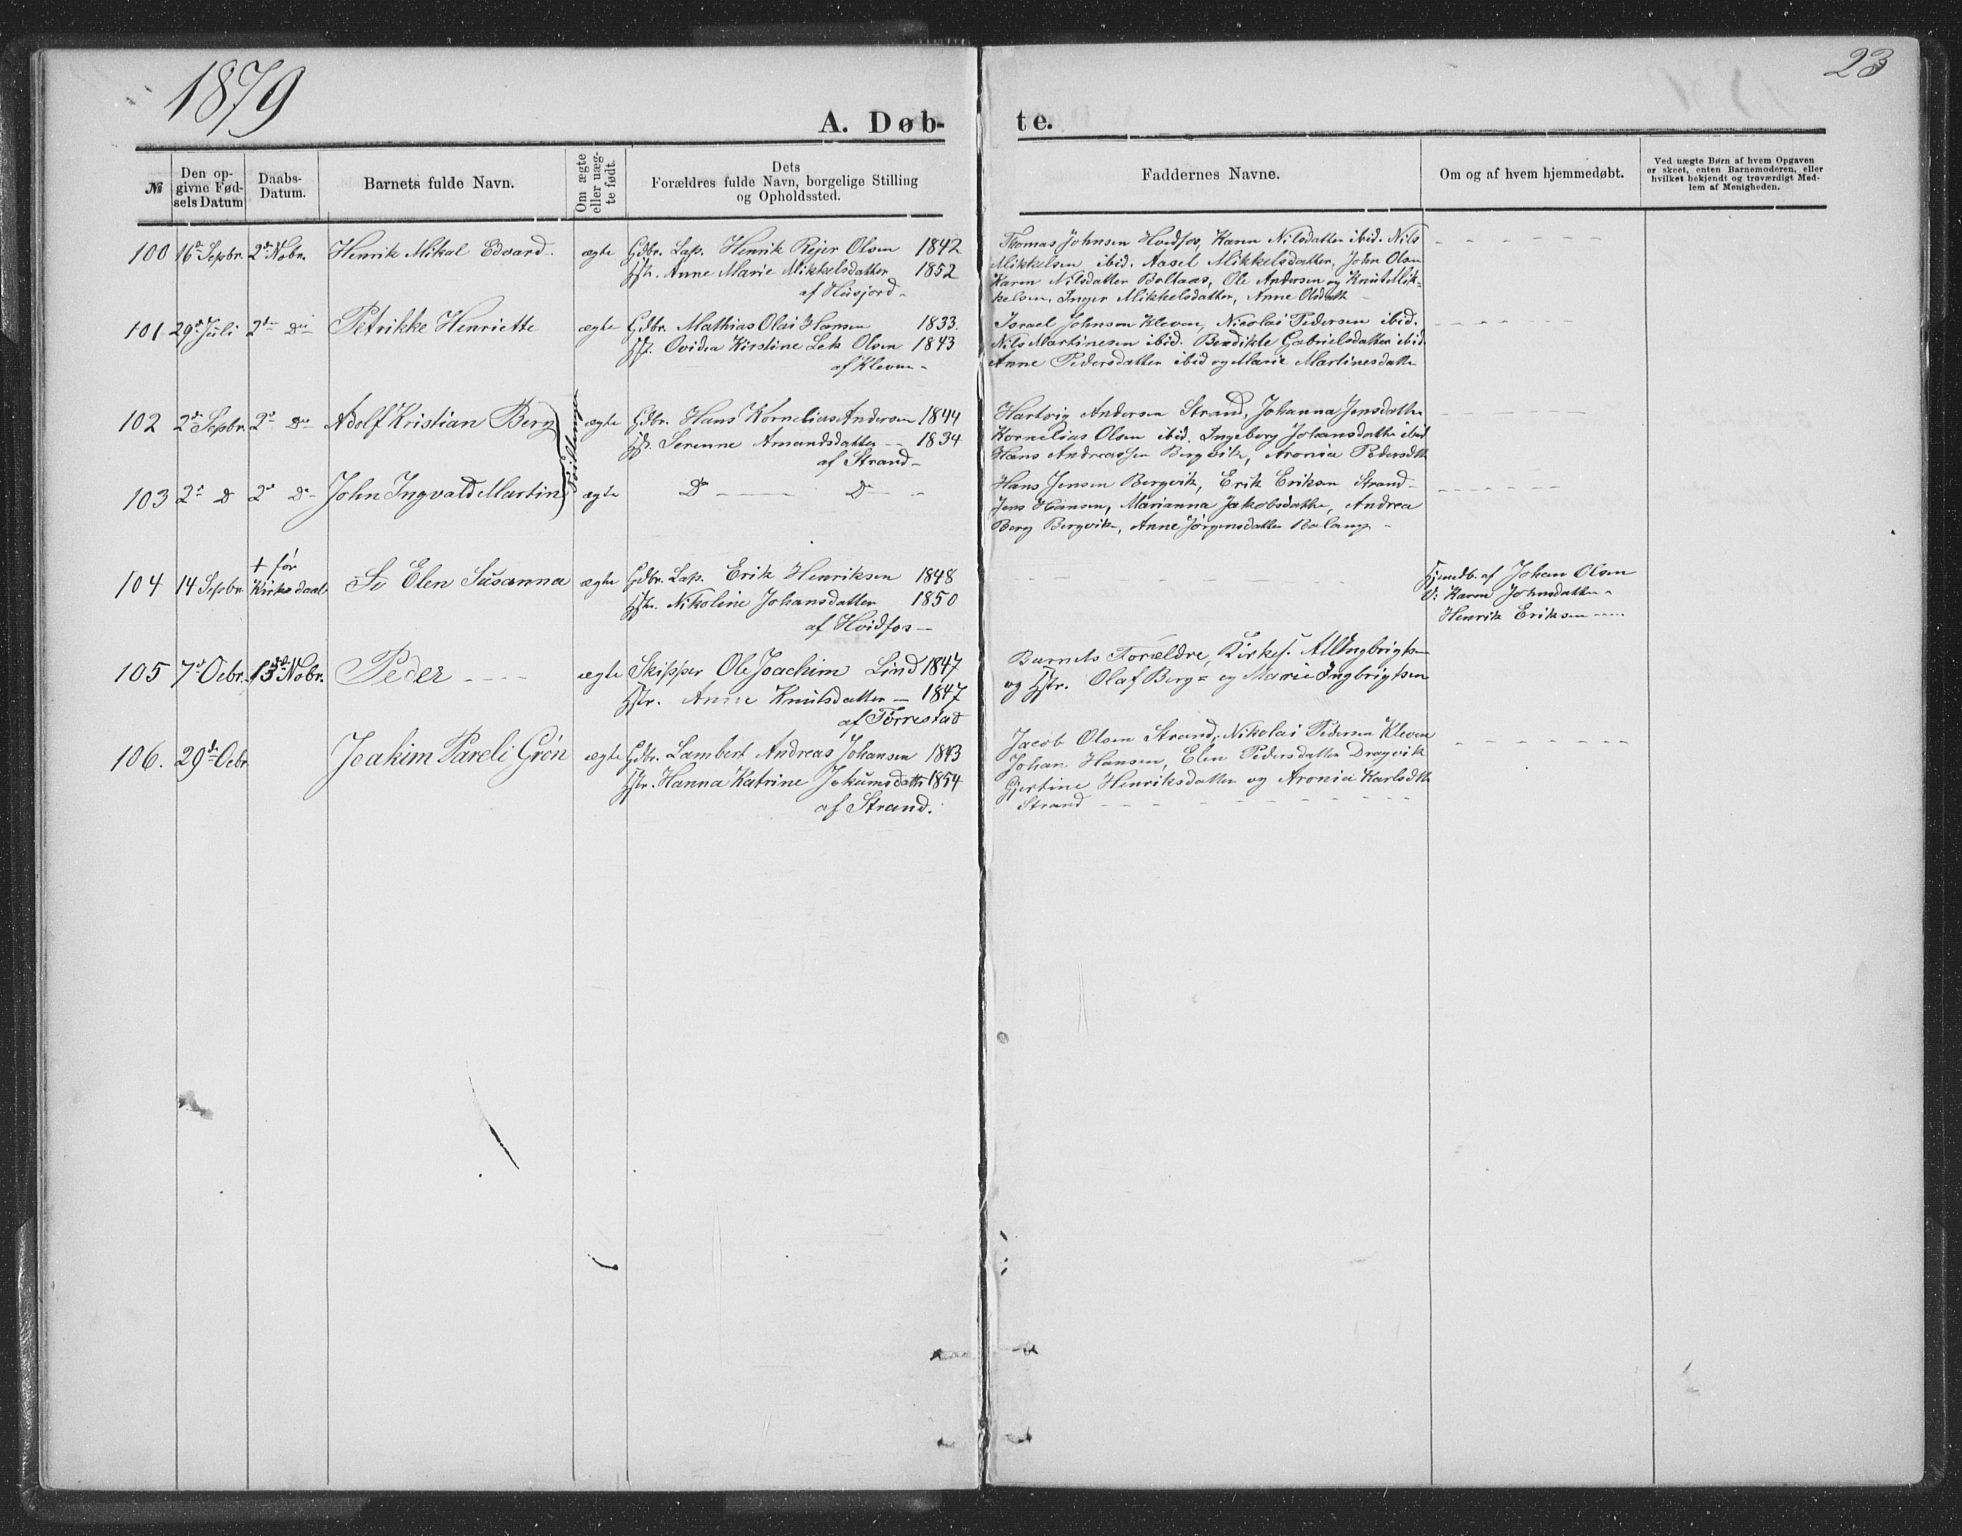 1879
23
A. Døb-
te.
№
Den op-
givne Fød-
sels Datum
Daabs-
Datum.
Barnets fulde Navn.
Om ægte
eller uæg-
te født.
Dets
Forældres fulde Navn, borgelige Stilling
og Opholdssted.
Faddernes Navne.
Om og af hvem hjemmedøbt.
Ved uægte Børn af hvem Opgaven
er skeet, enten Barnemoderen, eller
hvilket bekjendt og troværdigt Med-
lem af Menigheden.
100 16de Sepbr. 2den Nobr. Henrik Mikal Edvard. ægte Gdbr. Lap. Henrik Rejer Olsen 1842
Hstr. Anne Marie Mikkelsdatter 1852
af Husjord
Thomas Johnsen Hvidfos, Karen Nilsdatter ibid. Nils
Mikkelsen ibid. Aasel Mikkelsdatter, John Olsen
Karen Nilsdatter Boltaas, Ole Andersen og Knut Mik-
kelsen, Inger Mikkelsdatter, Anne Olsdatt
101 29de Juli 2den Do Petrikke Henriette ægte Gdbr. Mathias Olai Hansen 1833.
Hstr. Ovidia Kirstine Lek Olsen 1843
af Kleven
Israel Johnsen Kleven, Nicolai Pedersen ibid.
Nils Martinesen ibid. Bendikte Gabrielsdatter ibid.
Anne Pedersdatter ibid og Marie Martinesdatter
102 2den Sepbr. 2den Do Adolf Kristian Berg Tvillinger ægte Gdbr. Hans Kornelias Andersen 1844
Hstr. Serenne Amandsdatter 1834
af Strand
Hartvig Andersen Strand, Johanna Jensdatter
Kornelias Olsen ibid. Ingeborg Johansdatter ibid
Hans Andreassen Bergvik, Aronia Pedersdtr
103 2den Do 2den Do John Ingvald Martin ægte Do Do
Hans Jensen Bergvik, Erik Eriksen Strand
Jens Hansen, Marianna Jakobsdatter, Andrea
Berg Bergvik, Anne Jørgensdatter
104 14 Sepbr. + før
Kirkedaab Sv Elen Susanna ægte Gdbr. Lap. Erik Henriksen 1848
Hstr. Nikoline Johansdatter 1850
af Hvidfos
Hjmdb. af Johan Olsen
V: Karen Johnsdatter
Henrik Eriksen
105 7de Ocbr. 13de Nobr. Peder ægte Skipper Ole Joachim Lind 1847
Hstr. Anne Knutsdatter 1847
af Tørrestad
Barnets Forældre, Kirkes. A Ingbrigtsen
og Hstr. Olaf Berg og Marie Ingbrigtsen
106. 29de Ocbr. Joakim Pareli Grøn ægte Gdbr. Lambert Andreas Johansen 1843
Hstr. Hanna Katrine Jokumsdatter 1854
af Strand.
Jacob Olsen Strand, Nikolai Pedersen Kleven
Johan Hansen, Elen Pedersdatter Dragvik
Gjertine Henriksdatter og Aronia Karlsdtr
Strand